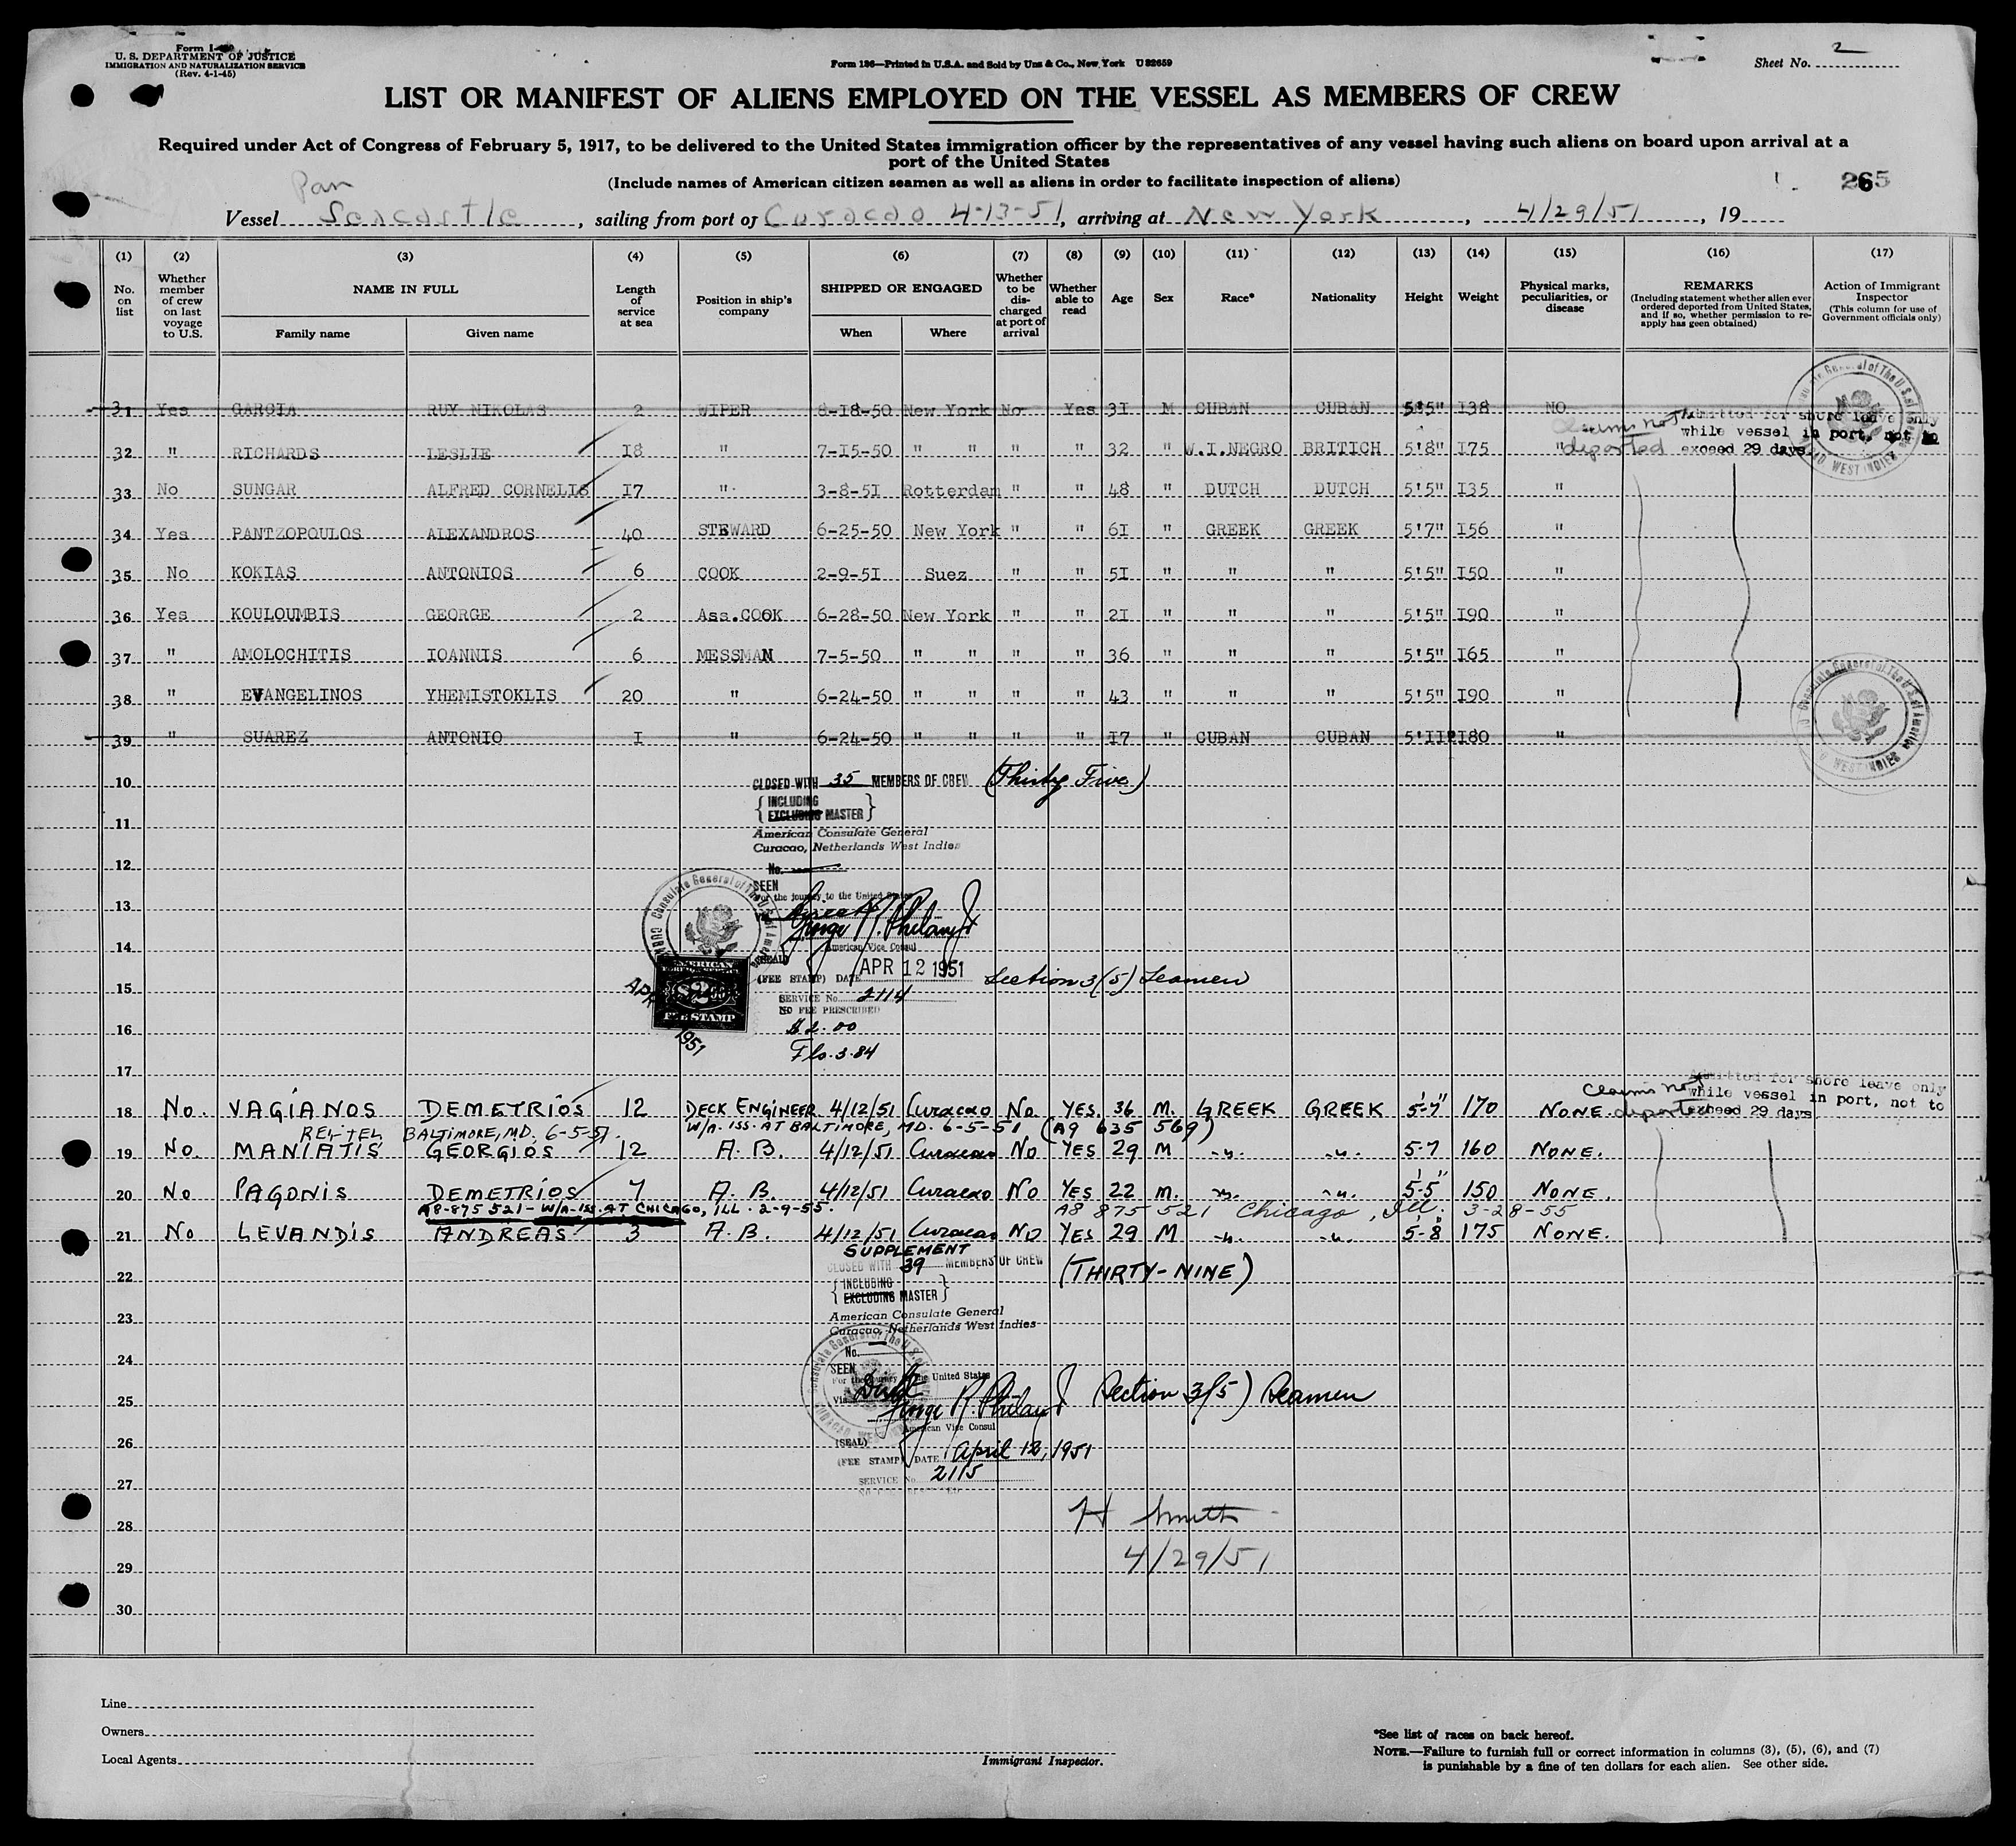 Form I-
U. S. DEPARTMENT OF JUSTICE
IMMIGRATION AND NATURALIZATION SERVICE
(Rev. 4-1-45)
Form 136—Printed in U.S.A. and Sold by Unz & Co., New York U 82659
Sheet No. 2
LIST OR MANIFEST OF ALIENS EMPLOYED ON THE VESSEL AS MEMBERS OF CREW
Required under Act of Congress of February 5, 1917, to be delivered to the United States immigration officer by the representatives of any vessel having such aliens on board upon arrival at a
port of the United States
(Include names of American citizen seamen as well as aliens in order to facilitate inspection of aliens)
265
Pan
Vessel Seacastle, sailing from port of Curacao 4-13-51, arriving at New York, 4/29/51, 19
(1) (2) (3) (4) (5) (6) (7) (8) (9) (10) (11) (12) (13) (14) (15) (16) (17)
No. on list
Whether member of crew on last voyage to U.S.
NAME IN FULL
Family name
Given name
Length of service at sea
Position in ship's company
SHIPPED OR ENGAGED
When
Where
Whether to be discharged at port of arrival
Whether able to read
Age
Sex
Race*
Nationality
Height
Weight
Physical marks, peculiarities, or disease
REMARKS
(Including statement whether alien ever ordered deported from United States, and if so, whether permission to re-apply has geen obtained)
Action of Immigrant Inspector
(This column for use of Government officials only)
31 Yes GARCIA RUY NIKOLAS 2 WIPER 8-18-50 New York No Yes 31 M CUBAN CUBAN 5'5" 138 NO
Claims not deported
Admitted for shore leave only
while vessel in port, not to
exceed 29 days
32 " RICHARDS LESLIE 18 " 7-15-50 " " " " 32 " W.I.NEGRO BRITICH 5'8" 175 "
33 No SUNGAR ALFRED CORNELIS 17 " 3-8-51 Rotterdam " " 48 " DUTCH DUTCH 5'5" 135 "
34 Yes PANTZOPOULOS ALEXANDROS 40 STEWARD 6-25-50 New York " " 61 " GREEK GREEK 5'7" 156 "
35 No KOKIAS ANTONIOS 6 COOK 2-9-51 Suez " " 51 " " " 5'5" 150 "
36 Yes KOULOUMBIS GEORGE 2 Ass.COOK 6-28-50 New York " " 21 " " " 5'5" 190 "
37 " AMOLOCHITIS IOANNIS 6 MESSMAN 7-5-50 " " " " 36 " " " 5'5" 165 "
38 " EVANGELINOS YHEMISTOKLIS 20 " 6-24-50 " " " " 43 " " " 5'5" 190 "
39 " SUAREZ ANTONIO 1 " 6-24-50 " " " " 17 " CUBAN CUBAN 5'11" 180 "
10 CLOSED WITH 35 MEMBERS OF CREW (Thirty Five)
{INCLUDING
EXCLUDING MASTER}
11
American Consulate General
Curacao, Netherlands West Indies
12
No.
SEEN
For the journey to the United States
13
Via Direct
George R. Philan Jr
14
American Vice Consul
(SEAL)
(FEE STAMP) DATE APR 12 1951
Section 3(5) Seamen
15
SERVICE No. 2114
NO FEE PRESCRIBED
16
$2.00
Flo. 3.84
AMERICAN
$2
FEE STAMP
APR 1951
Consulate General of The U.S. of America
17
18 No. VAGIANOS DEMETRIOS 12 DECK ENGINEER 4/12/51 Curacao No YES. 36 M. GREEK GREEK 5'-7" 170 NONE.
Claims not deported
Admitted for shore leave only
while vessel in port, not to
exceed 29 days
REL TEL BALTIMORE, MD. 6-5-51. W/A. ISS. AT BALTIMORE, MD. 6-5-51 (A9 635 569)
19 No. MANIATIS GEORGIOS 12 A.B. 4/12/51 Curacao No YES 29 M -"- -"- 5-7 160 NONE.
20 No PAGONIS DEMETRIOS 7 A.B. 4/12/51 Curacao No YES 22 M. -"- -"- 5'-5" 150 NONE.
A8-875 521 - W/A-ISS. AT CHICAGO, ILL. 2-9-55. A8 875 521 Chicago, Ill. 3-28-55
21 No LEVANDIS ANDREAS 3 A.B. 4/12/51 Curacao No YES 29 M -"- -"- 5'-8" 175 NONE.
SUPPLEMENT
22 CLOSED WITH 39 MEMBERS OF CREW (THIRTY-NINE)
{INCLUDING
EXCLUDING MASTER}
23
American Consulate General
Curacao, Netherlands West Indies
24
No.
SEEN
For the journey to the United States
25
Via Direct
George R. Philan Jr
Section 3(5) Seamen
American Vice Consul
26
(SEAL)
(FEE STAMP) DATE April 12, 1951
27
SERVICE No. 2115
28
H Smith
29
4/29/51
30
Line
Owners
Local Agents
Immigrant Inspector.
*See list of races on back hereof.
NOTE.—Failure to furnish full or correct information in columns (3), (5), (6), and (7)
is punishable by a fine of ten dollars for each alien. See other side.